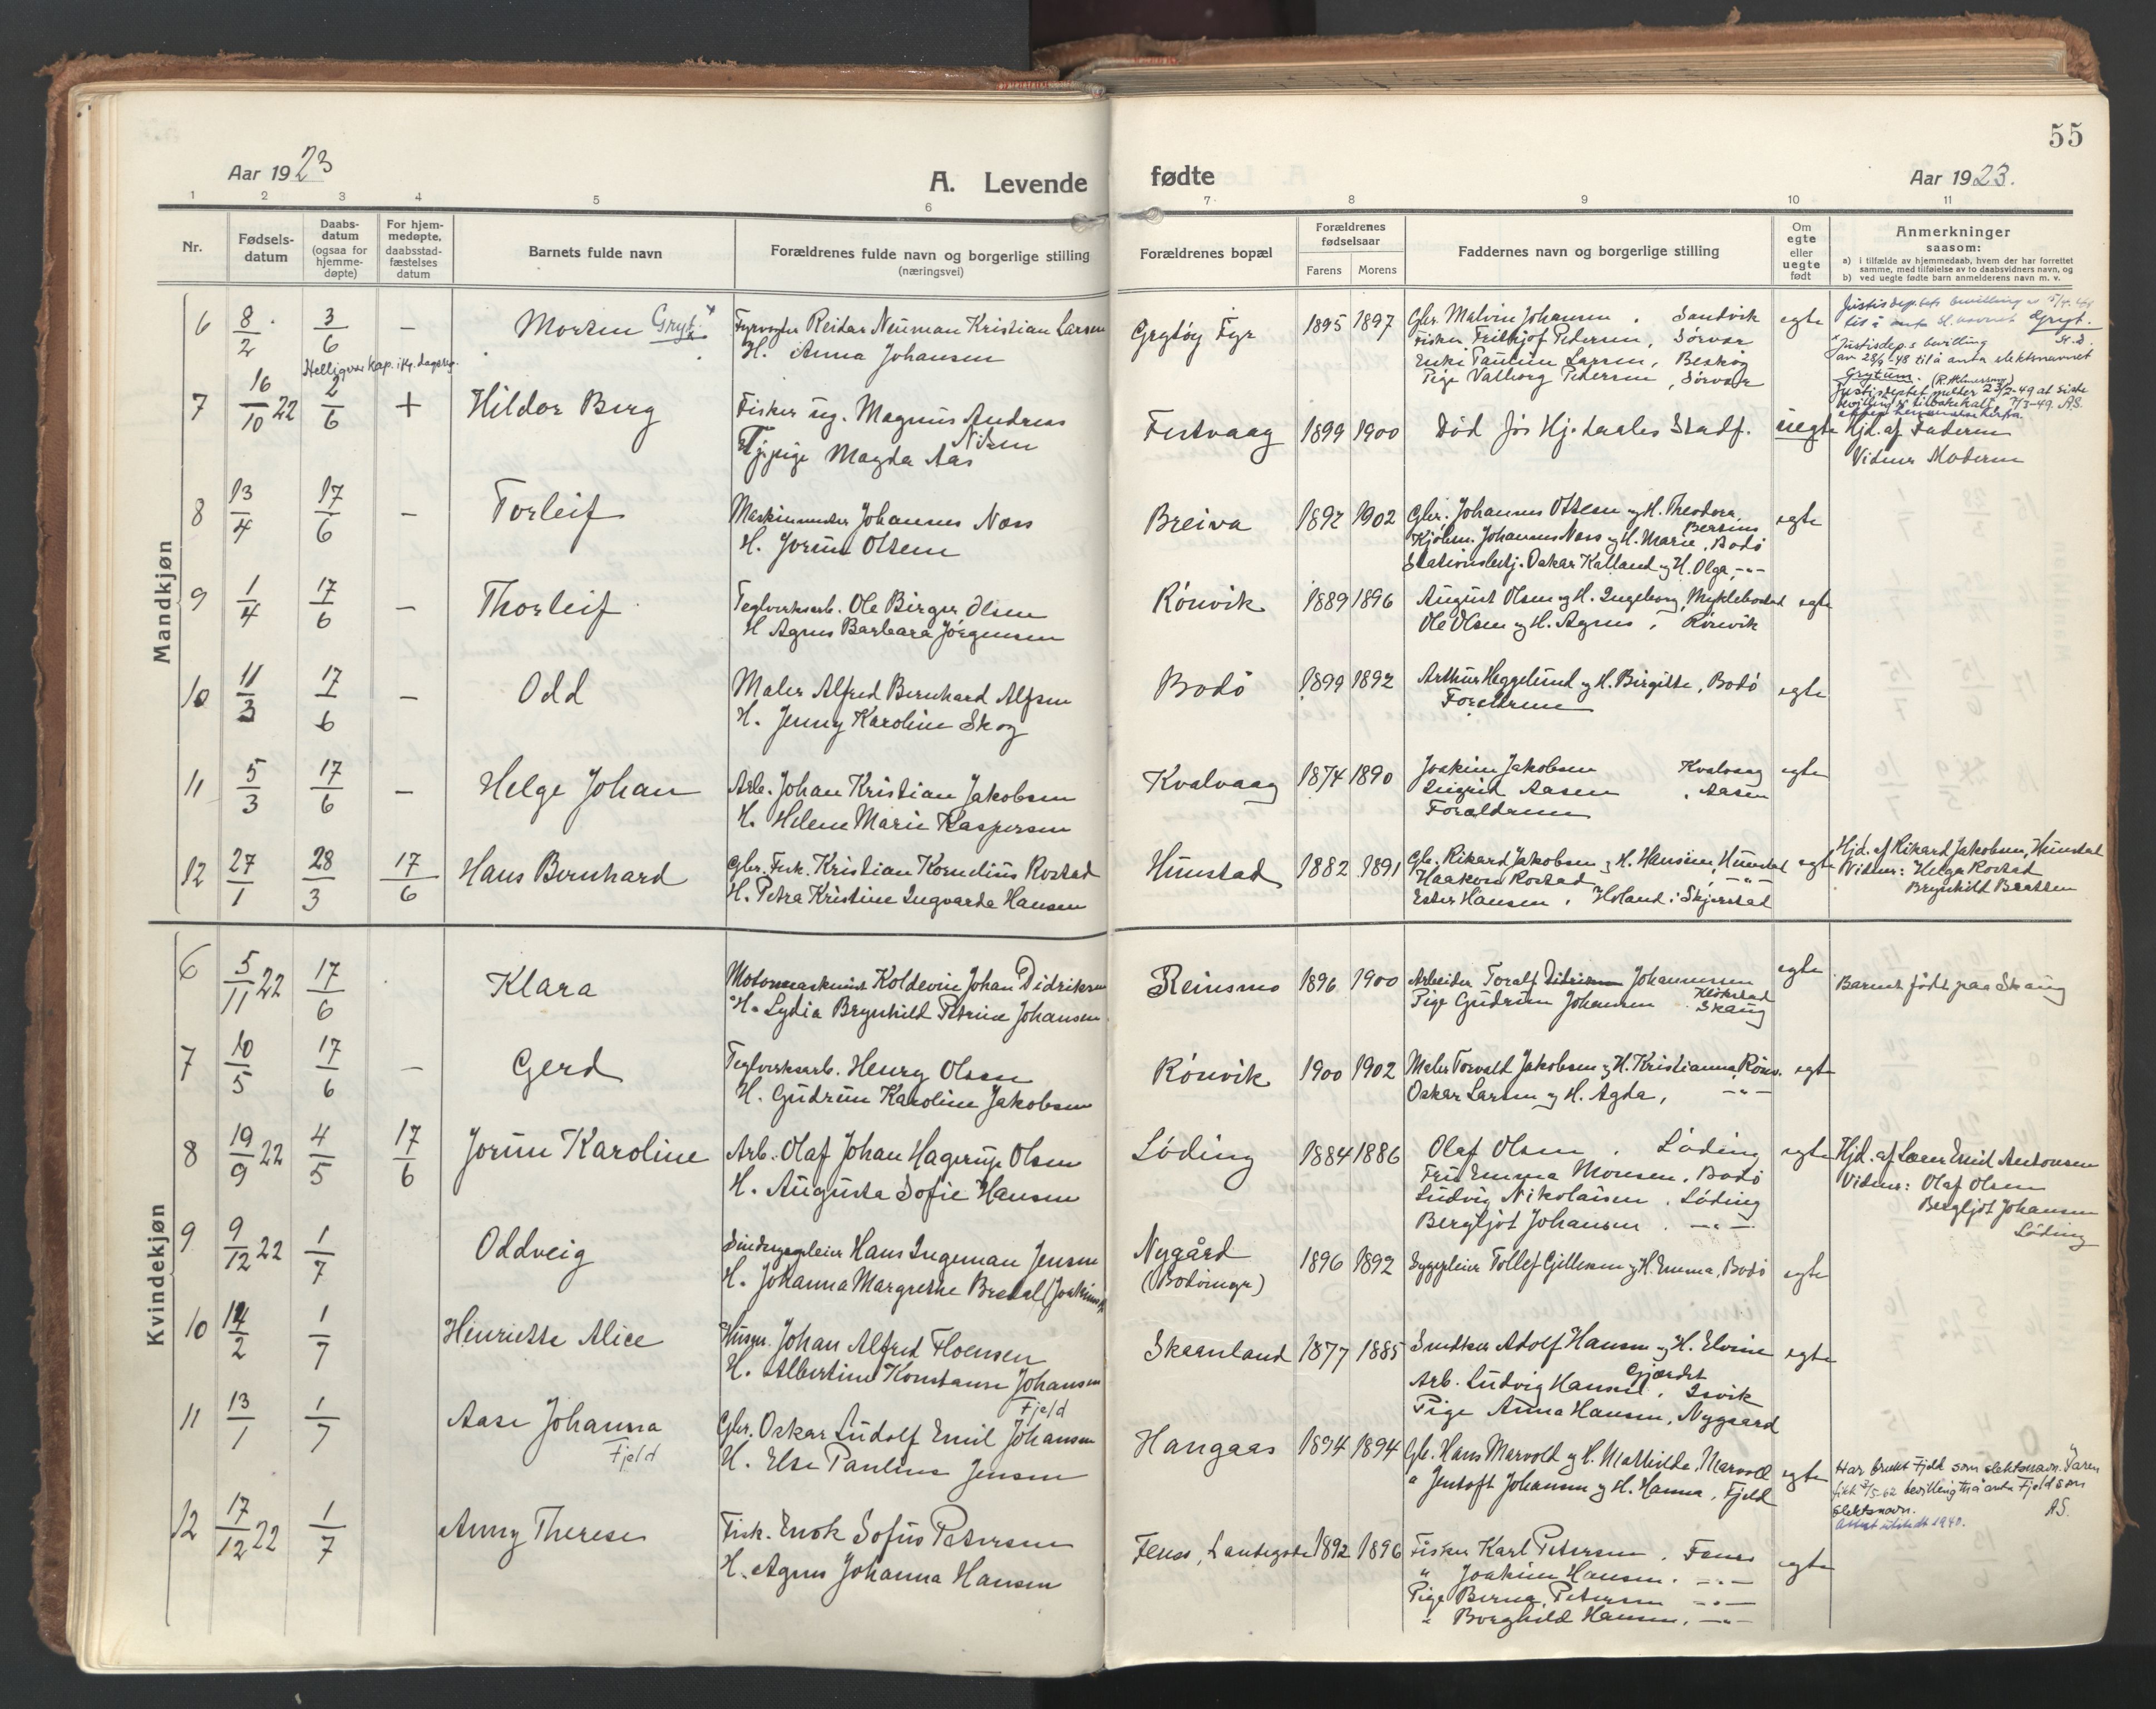 55
Aar 1923
A. Levende
fødte
Aar 1923.
1 2 3 4 5 6 7 8 9 10 11
Nr.
Fødsels-
datum
Daabs-
datum
(ogsaa for
hjemme-
døpte)
For hjem-
medøpte,
daabsstad-
fæstelses
datum
Barnets fulde navn
Forældrenes fulde navn og borgerlige stilling
(næringsvei)
Forældrenes bopæl
Forældrenes
fødselsaar
Farens Morens
Faddernes navn og borgerlige stilling
Om
egte
eller
uegte
født
Anmerkninger
saasom:
a) i tilfælde av hjemmedaab, hvem der har forrettet
samme, med tilføielse av to daabsvidners navn, og
b) ved uegte fødte barn anmelderens navn m. v.
Mandkjøn
6 8/2 3/6 — Morten Gryt
Fyrvogter Reidar Neuman Kristian Larsen
H. Anna Johansen
Grytøy Fyr 1895 1897
Gbr. Malvin Johansen, Sandvik
Fisker Fridtjof Pedersen, Sørvær
Enke Pauline Larsen,
Pige Valborg Pedersen, Sørvær
egte
Justisdep.s bevilling
av 28/9-48 til å anta slektsnavnet
Grytum.
7 16/10 22 2/6 + Hildor Berg
Fisker ug. Magnus Andreas
Nilsen
Tj.pige Magda Aas
Festvaag 1899 1900
Død før Hj.daabs Stadf.
uegte
Hjd. af Faderen
Vidner Moderen
8 13/4 17/6 — Torleif
Maskinmester Johannes Næss
H. Jorun Olsen
Breiva 1892 1902
Gbr. Johannes Olsen og H. Theodora,
Kjøbm. Johannes Næss og H. Marie, Bodø
Stationsbetj. Oskar Kalland og H. Olga, -"-
egte
9 1/4 17/6 — Thorleif
Teglverksarb. Ole Birger Olsen
H Agnes Barbara Jørgensen
Rønvik 1889 1896
August Olsen og H. Ingeborg, Myklebostad
Ole Olsen og H. Agnes, Rønvik
egte
10 11/3 17/6 — Odd
Maler Alfred Bernhard Alfsen
H. Jenny Karoline Skog
Bodø 1899 1892
Arthur Heggelund og H. Birgitte, Bodø
Foreldrene
egte
11 5/3 17/6 — Helge Johan
Arb. Johan Kristian Jakobsen
H. Helene Marie Kaspersen
Kvalvaag 1874 1890
Joakim Jakobsen Kvalvaag
Sigrid Aasen, Aasen
Forældrene
egte
12 27/1 28/3 17/6 Hans Bernhard
Gbr. Fisk. Kristian Kornelius Rostad
H. Petra Kristine Ingvarda Hansen
Hunstad 1882 1891
Gb. Rikard Jakobsen og H. Hansine, Hunstad
Haakon Rostad, -"-
Ester Hansen, Holand i Skjerstad
egte
Hjd. af Rikard Jakobsen, Hunstad
Vidner: Helga Rostad
Brynhild Baatsen
Kvindekjøn
6 5/11 22 17/6 Klara
Motormaskinist Koldevin Johan Didriksen
H. Lydia Brynhild Petrine Johansen
Reinsmo 1896 1900
Arbeider Toralf Johannesen
Klokstad
Pige Gudrun Johansen Skaug
egte
Barnet født paa Skaug
7 10/5 17/6 — Gerd
Teglverksarb. Henry Olsen
H. Gudrun Karoline Jakobsen
Rønvik 1900 1902
Maler Torvald Jakobsen og H. Kristianna, Rønv.
Oskar Larsen og H. Agda, -"-
egte
8 19/9 22 4/5 17/6 Jorun Karoline
Arb. Olaf Johan Hagerup Olsen
H. Augusta Sofie Hansen
Løding 1884 1886
Olaf Olsen, Løding
Fru Emma Monsen, Bodø
Ludvig Nikolaisen, Løding
Bergljot Johansen, -"-
egte
Hjd. af Lærer Emil Antonsen
Vidner: Olaf Olsen
Bergljot Johansen
Løding
9 9/12 22 1/7 Oddveig
Sindsygepleier Hans Ingeman Jensen
H. Johanna Margrethe Bredal
Nygård
(Bodømyr)
1896 1892
Sygepleier Tollef Gillesen og H. Emma, Bodø
egte
10 14/2 1/7 Henriette Alice
Husm. Johan Alfred Floensen
H. Albertine Konstanse Johansen
Skaanland 1877 1885
Snedker Adolf Hansen og H. Elvine
Gjærdet
Arb. Ludvig Hansen, Isvik
Pige Anna Hansen, Nygaard
egte
11 13/1 1/7 Aase Johanna
Fjeld
Fjeld
Gbr. Oskar Ludolf Emil Johansen
H. Else Pauline Jensen
Hangaas 1894 1894
Gb. Hans Marvold og H. Mathilde, Marvold
" Jentoft Johansen og H. Hanna, Fjeld
egte
Har brukt Fjeld som slektsnavn. Faren
fikt bevilling til å anta Fjeld som
slektsnavn. AS.
Attest utstedt 1940.
12 17/12 22 1/7 Anny Therese
Fisk. Enok Sofus Petersen
H. Agnes Johanna Hansen
Fenes, Landegode 1892 1896
Fisker Karl Petersen, Fenes
" Joakim Hansen, -"-
Pige Berna Petersen -"-
" Borghild Hansen, -"-
egte